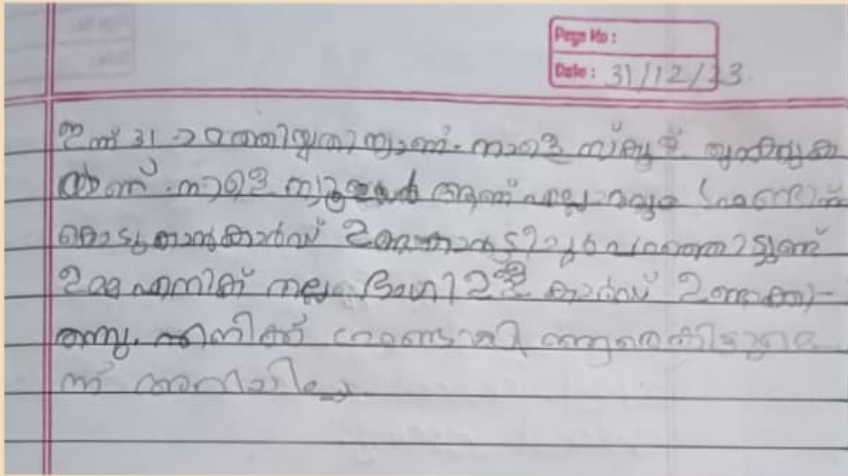 Page No :
Date : 31/12/23
ഇന്ന് 31 ാറത്തിയ്യതിയ്യാണ്. നാളെ സ്കൂള് തുറക്കുക
യാണ്. നാളെ ന്യൂഇയർ ആണ് എല്ലാവരും ഫ്രണ്ടിന്
കൊടുക്കാൻകാർഡ് ഉണ്ടക്കാൻ ടീച്ചർ പറഞ്ഞിട്ടുണ്ട്
ഉമ്മ എനിക് നല്ല ഭംഗി ഉള്ള കാർഡ് ഉണ്ടക്കി-
തന്നു. എനിക്ക്
ന്ന്